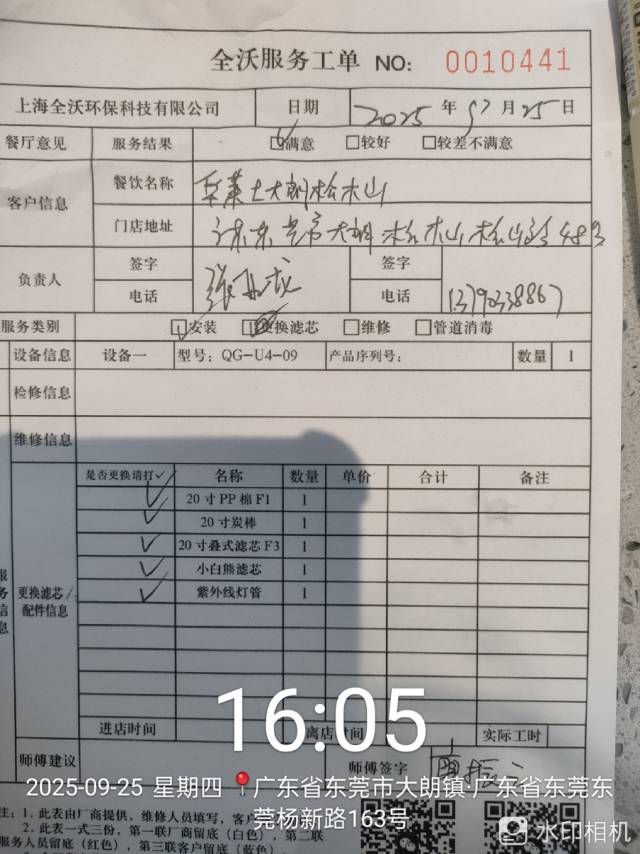 全沃服务工单 NO: 0010441
上海全沃环保科技有限公司 日期 2025 年 月 25 日
餐厅意见 服务结果 ☑满意 □较好 □较差不满意
客户信息 餐饮名称 大朗松木山
门店地址 广东东莞市大朗松木山松山路48号
负责人 签字 签字
电话 电话 13790338867
服务类别 ☑安装 更换滤芯 □维修 □管道消毒
设备信息 设备一 型号：QG-U4-09 产品序列号： 数量 1
检修信息
维修信息
是否更换请打✓ 名称 数量 单价 合计 备注
✓ 20 寸 PP 棉 F1 1
✓ 20 寸炭棒 1
✓ 20 寸叠式滤芯 F3 1
✓ 小白熊滤芯 1
✓ 紫外线灯管 1
服务信息 更换滤芯/
配件信息
进店时间 离店时间 实际工时
16:05
师傅建议 师傅签字
2025-09-25 星期四 广东省东莞市大朗镇·广东省东莞东
莞杨新路163号
注：1. 此表由厂商提供，维修人员填写，客户
2. 此表一式三份，第一联厂商留底（白色），第二联
服务人员留底（红色），第三联客户留底（蓝色）。
水印相机